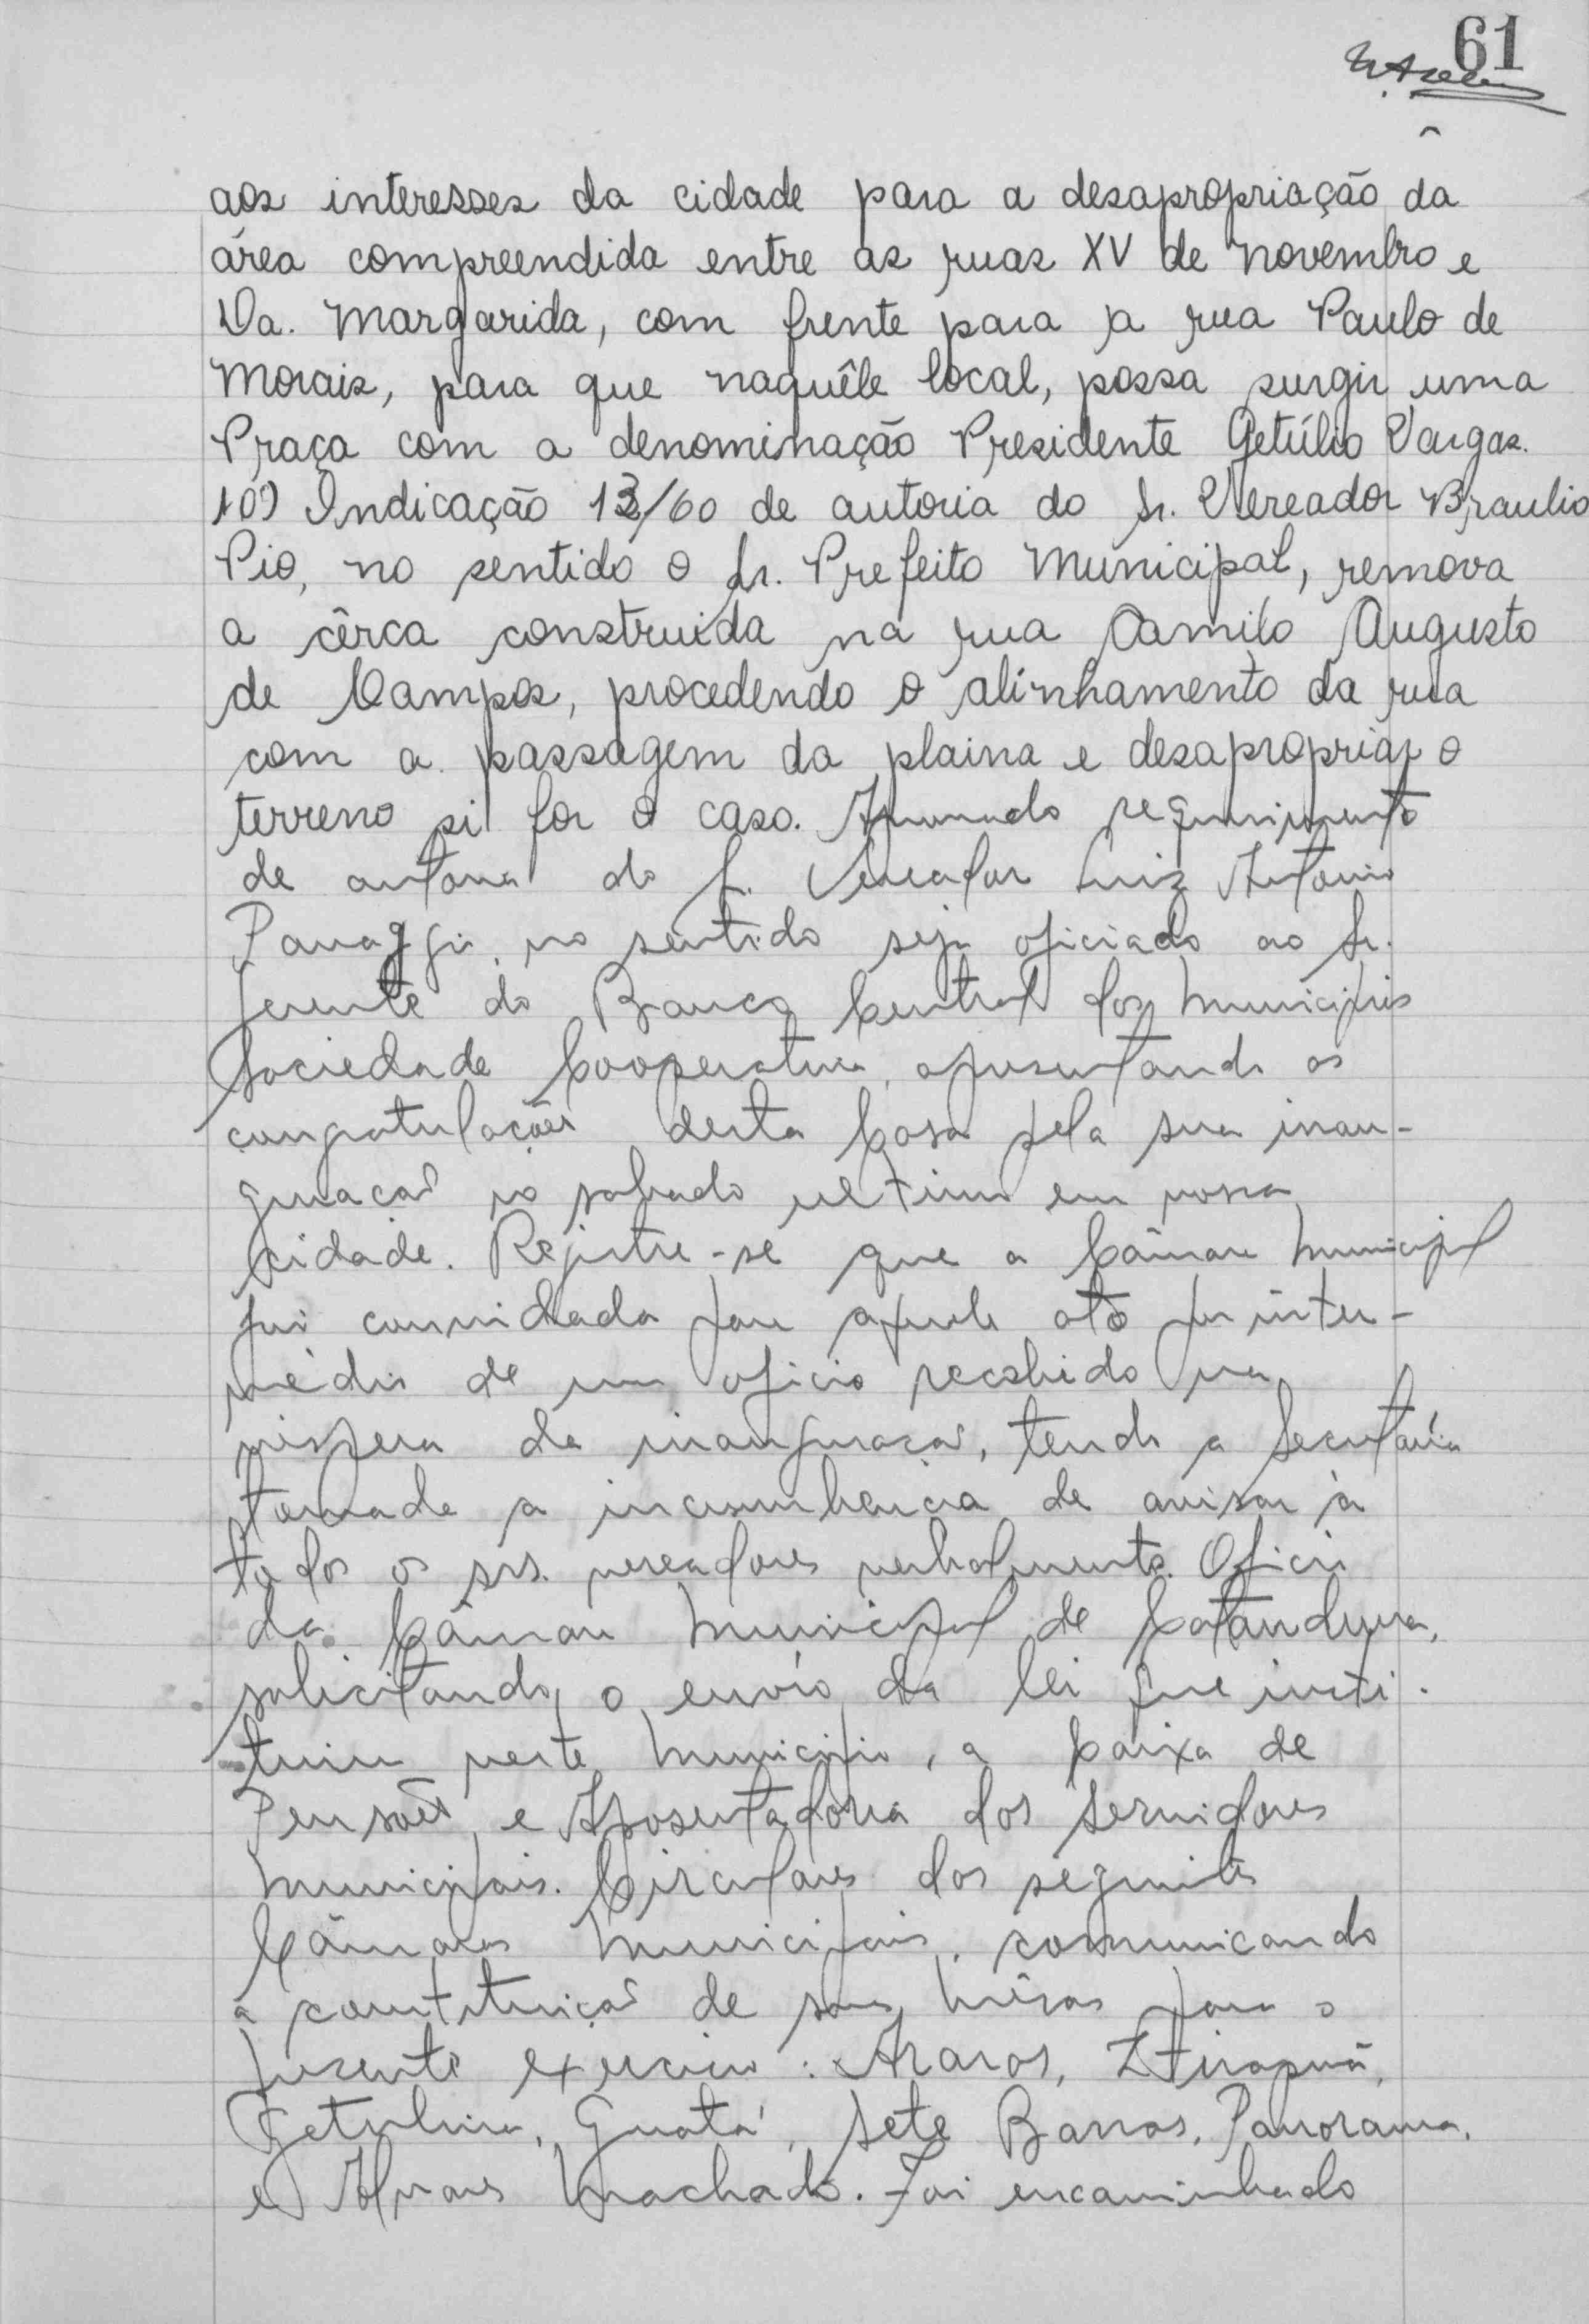 61
aos interesses da cidade para a desapropriação da
área compreendida entre as ruas XV de novembro e
Da. Margarida, com frente para a rua Paulo de
Morais, para que naquêle local, possa surgir uma
Praça com a denominação Presidente Getúlio Vargas.
10) Indicação 13/60 de autoria do Sr. Vereador Braulio
Pio, no sentido o Sr. Prefeito Municipal, remova
a cêrca construida na rua Camilo Augusto
de Campos, procedendo o alinhamento da rua
com a passagem da plaina e desapropriar o
terreno si for o caso. requerimento
de autoria do Sr. Vereador Luiz Antonio
no sentido seja oficiado ao Sr.
Gerente do Banco Central dos Municipios
Sociedade Cooperativa, apresentando as
congratulações desta Casa pela sua inau-
guração no sabado ultimo em nossa
cidade. Registre-se que a Câmara Municipal
foi convidada para aquele ato por inter-
médio de um oficio recebido na
vespera da inauguração, tendo a Secretaria
tomado a incumbencia de avisar à
todos os srs. vereadores verbalmente. Oficio
da Câmara Municipal de Catanduva,
solicitando o envio da lei que insti-
tuiu neste Municipio, a Caixa de
Pensões e Aposentadoria dos Servidores
Municipais. Circulares das seguintes
Câmaras Municipais, comunicando
a constituição de suas Mesas para o
presente exercicio: Araras, Itirapuã,
Getulina, Guatá, Sete Barras, Panorama,
e Alvares Machado. Foi encaminhado